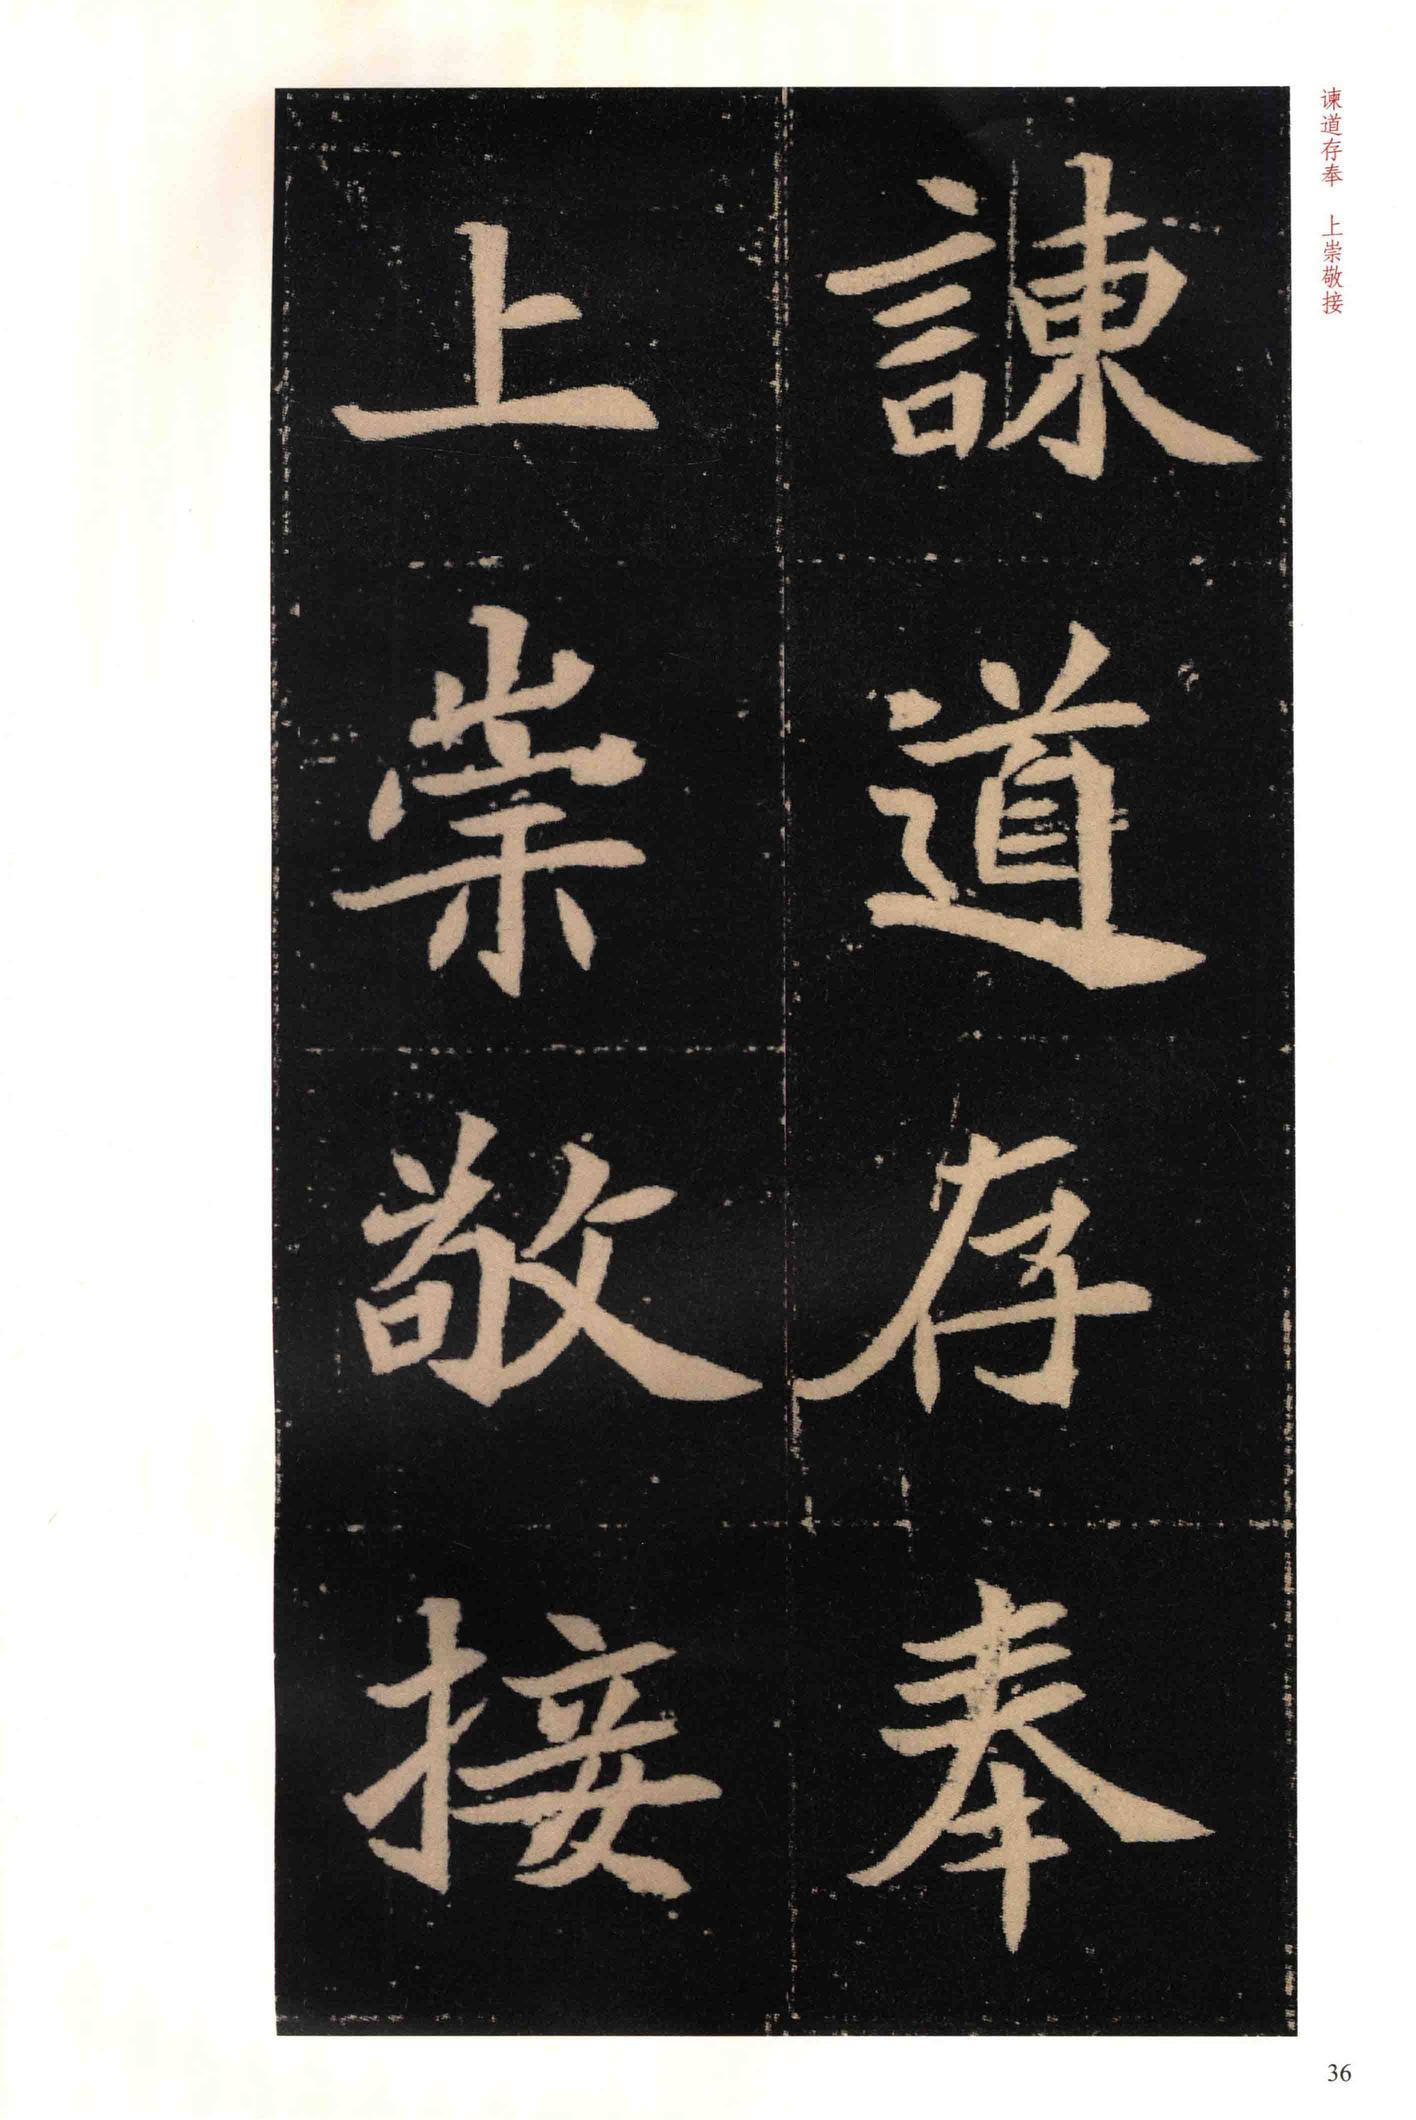 谏道存奉　上崇敬接
諫道存奉
上崇敬接
36